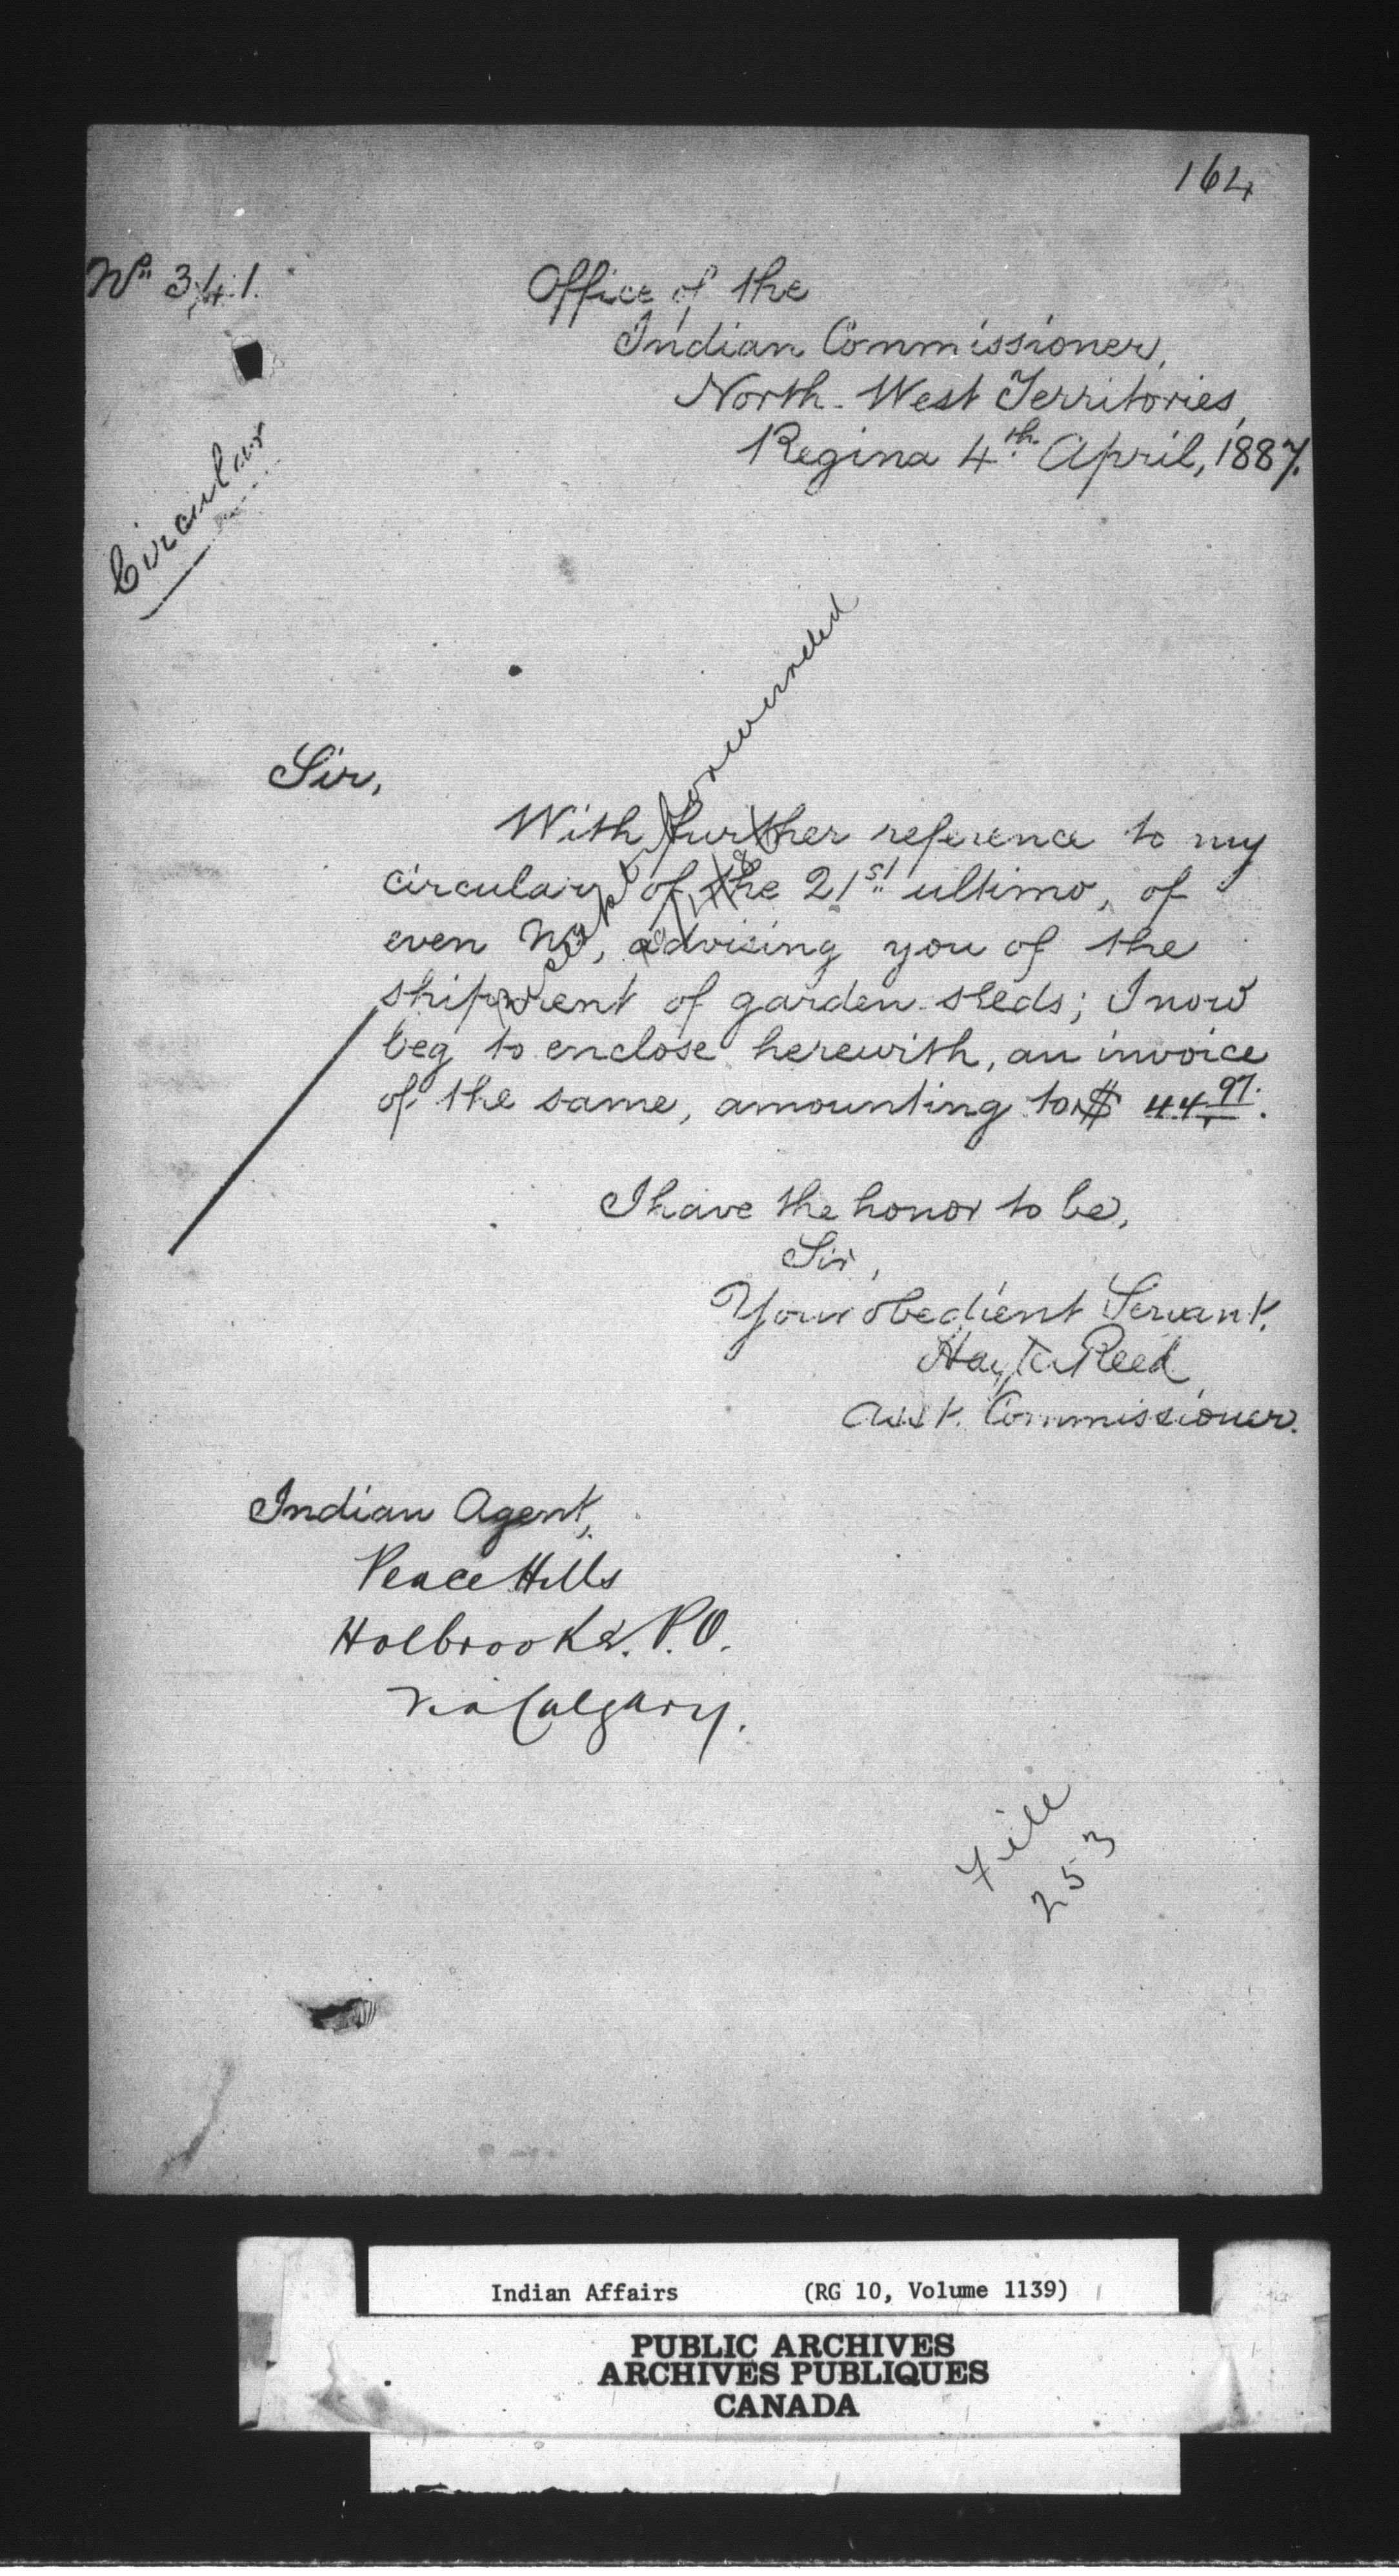 164
No. 341.
Office of the
Indian Commissioner,
North-West Territories,
Regina 4th April, 1887.
Circular
Sir,
With further reference to my
circular of the 21st ultimo, of
even No, advising you of the
shipment of garden seeds; I now
beg to enclose herewith, an invoice
of the same, amounting to $ 44.97.
I have the honor to be,
Sir,
Your obedient Servant.
Hayter Reed
Asst. Commissioner.
Indian Agent,
Peace Hills
Holbrooke. P.O.
Via Calgary.
File
253
Indian Affairs (RG 10, Volume 1139)
PUBLIC ARCHIVES
ARCHIVES PUBLIQUES
CANADA